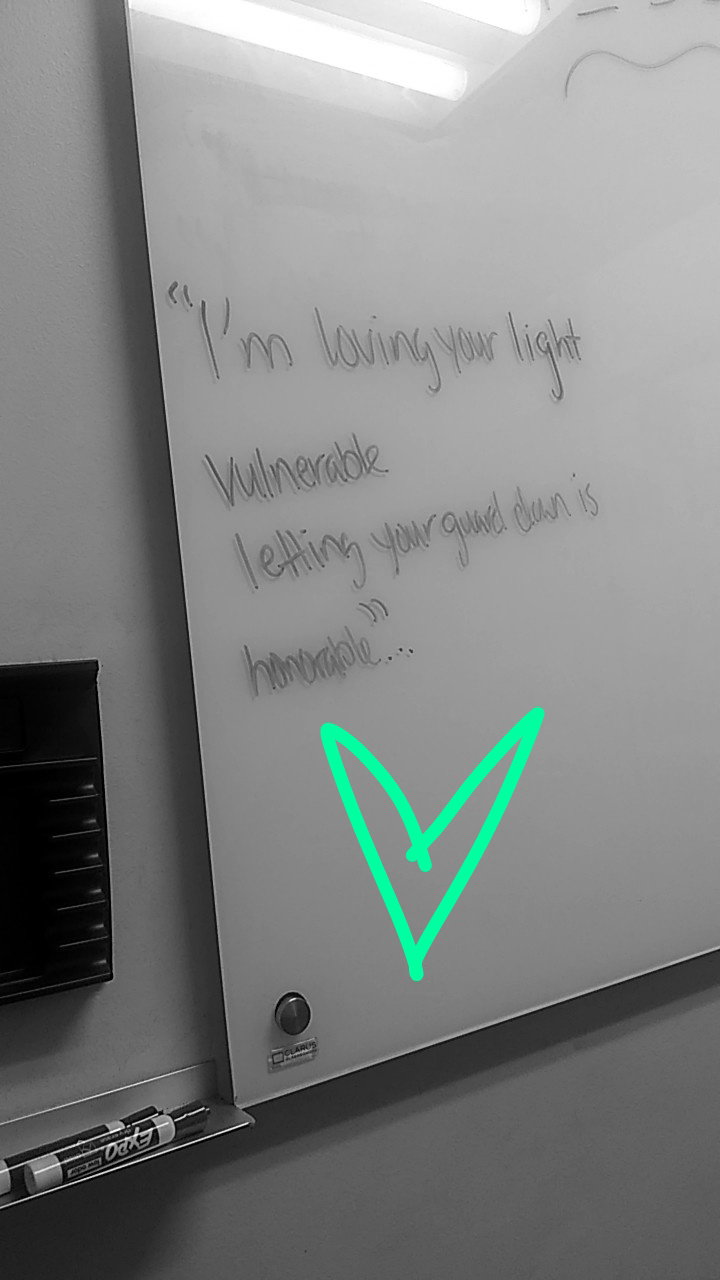 “I'm loving your light
Vulnerable
letting your guard down is
honorable”...
CLARUS
EXPO
low odor